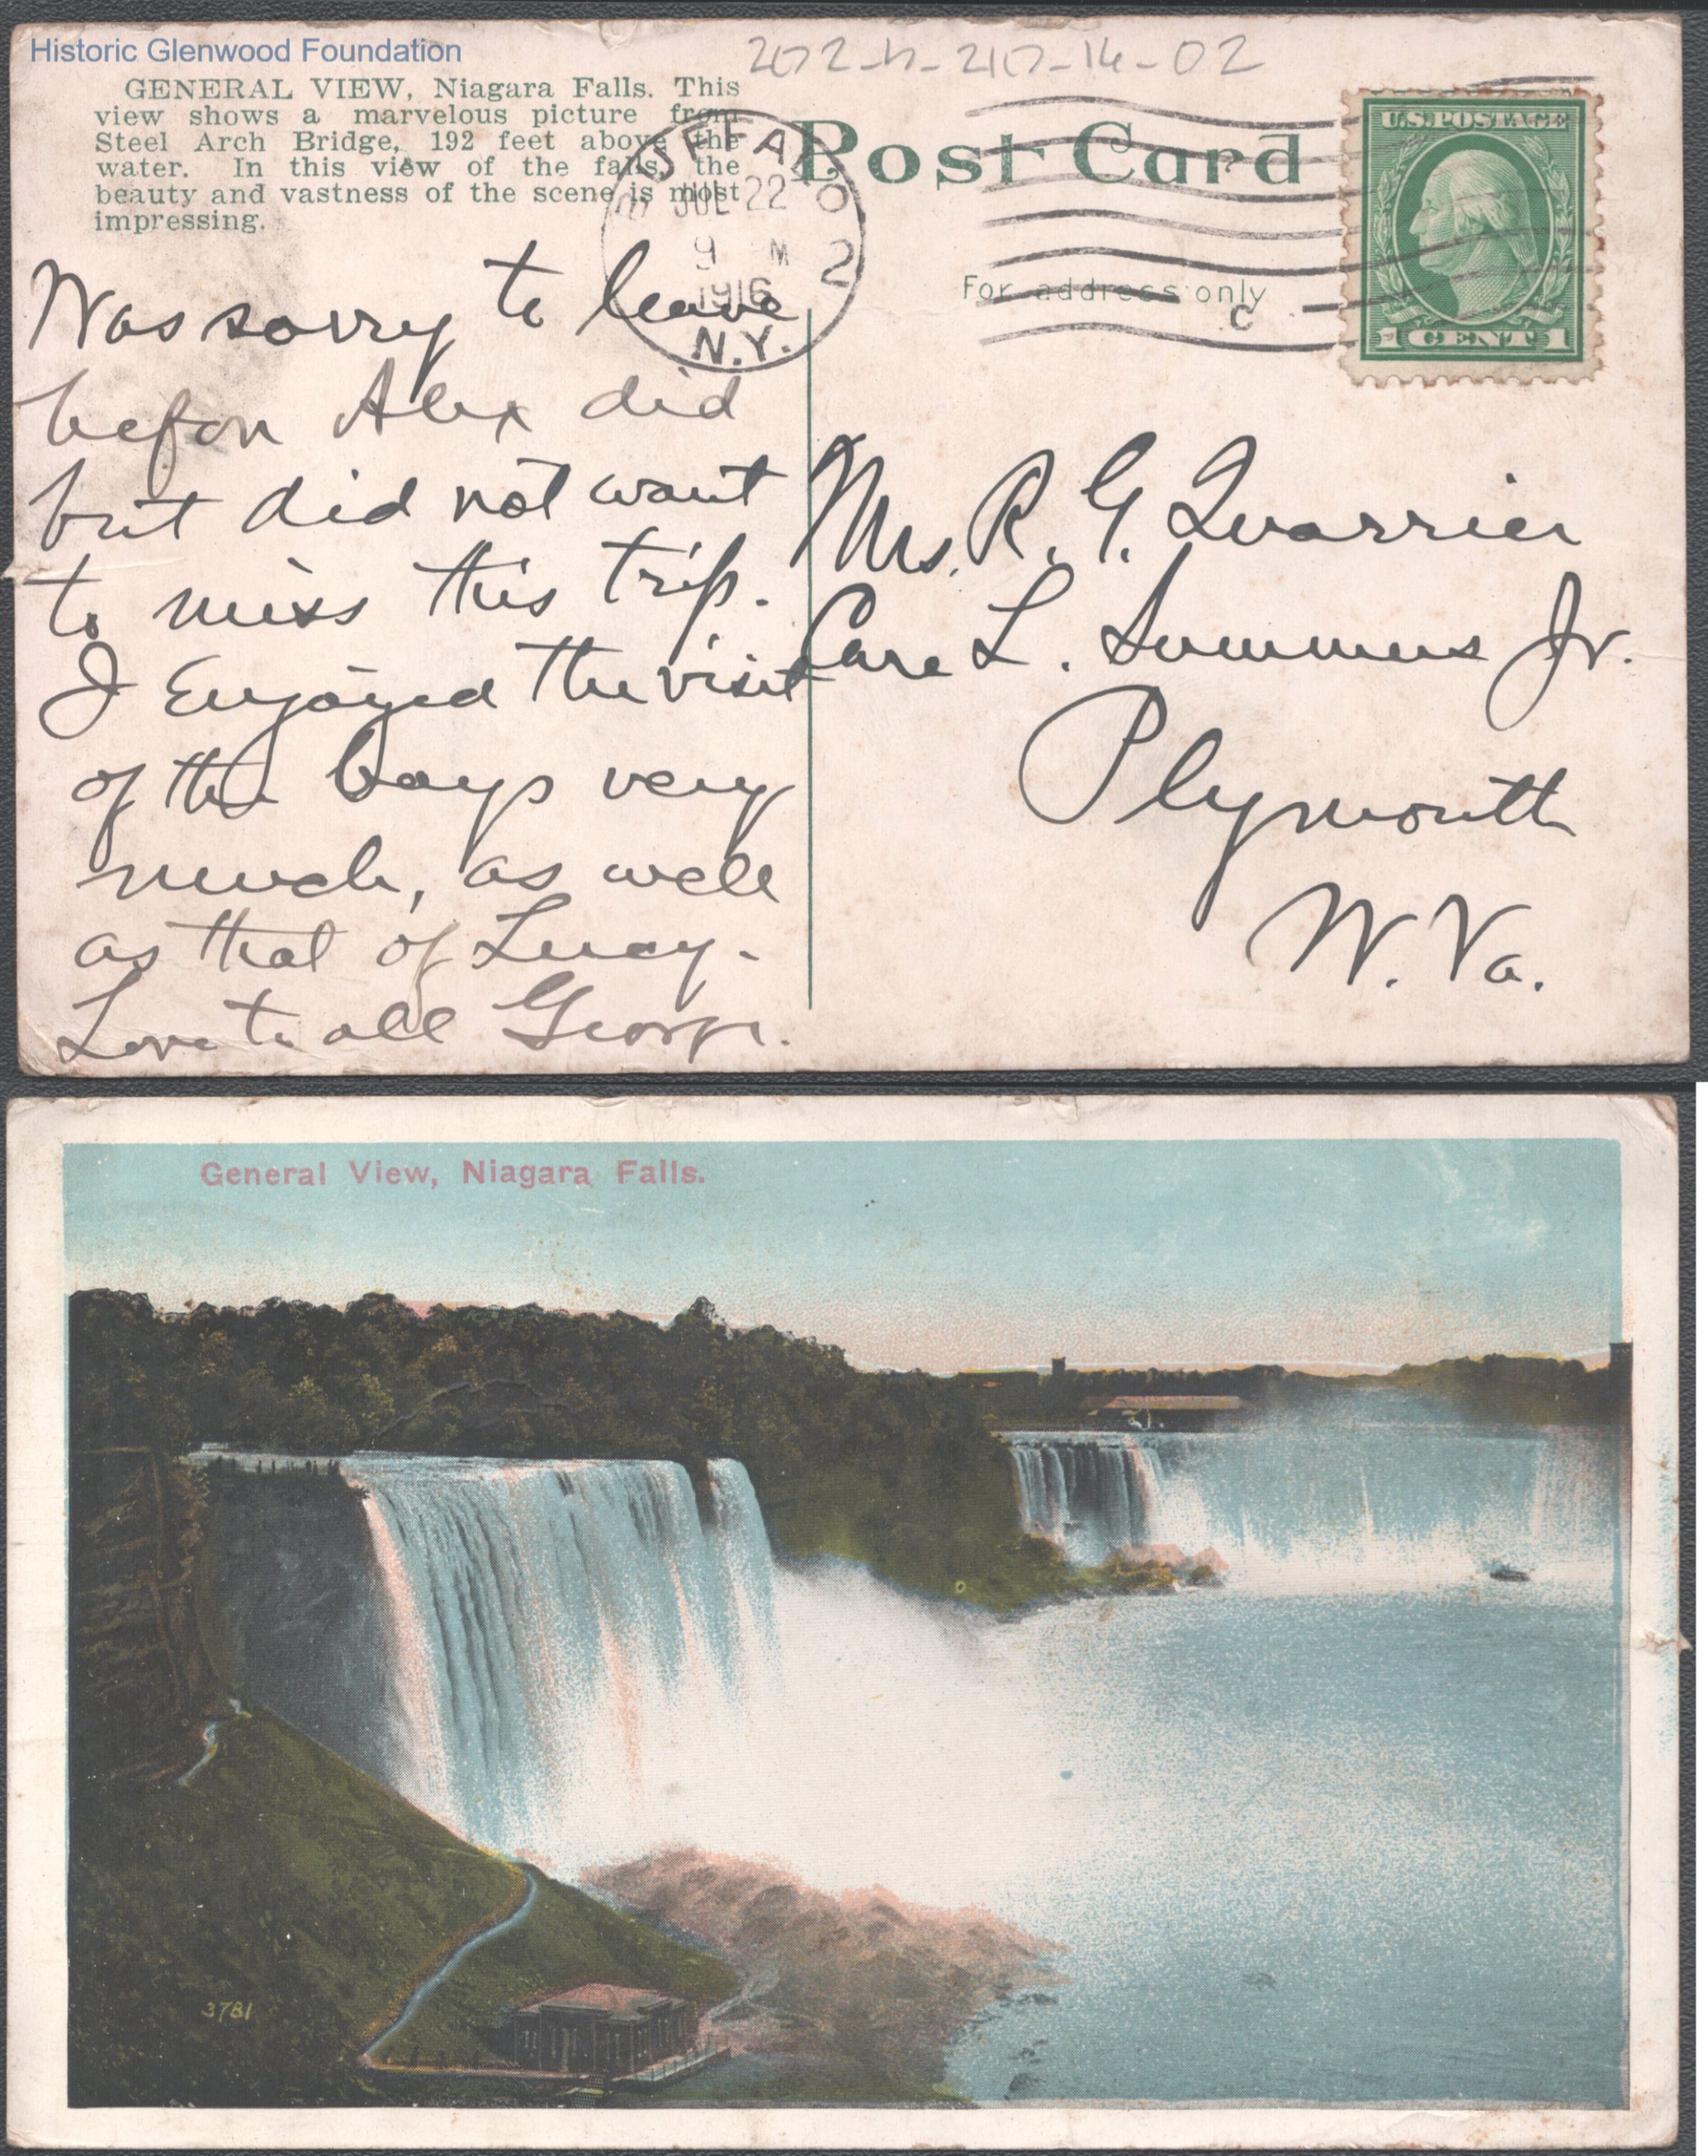 Historic Glenwood Foundation
GENERAL VIEW, Niagara Falls. This
view shows a marvelous picture from
Steel Arch Bridge, 192 feet above the
water. In this view of the falls, the
beauty and vastness of the scene is most
impressing.
Post Card
For address only
U.S. POSTAGE
1 CENT 1
BUFFALO
JUL 22
9 M
1916
2
N.Y.
C
Was sorry to leave
before Alex did
but did not want
to miss this trip.
I Enjoyed the visit
of the boys very
much, as well
as that of Lucy.
Love to all George.
Mrs. R. G. Quarrier
Care L. Summers Jr.
Plymouth
W. Va.
General View, Niagara Falls.
3781